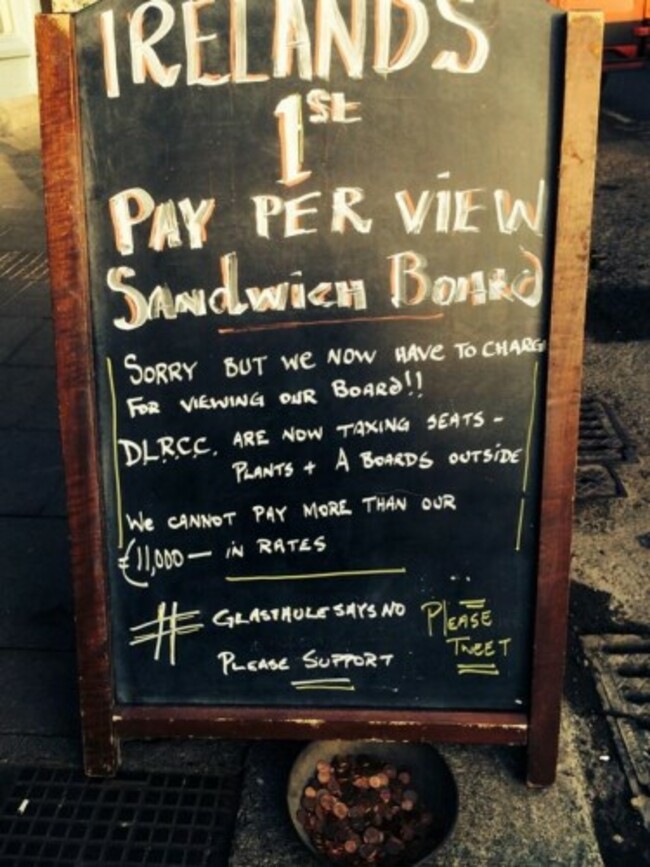 IRELANDS
1ST
PAY PER VIEW
SANDWICH BOARD
SORRY BUT WE NOW HAVE TO CHARGE
FOR VIEWING OUR BOARD!!
D.L.R.C.C. ARE NOW TAXING SEATS -
PLANTS + A BOARDS OUTSIDE
WE CANNOT PAY MORE THAN OUR
€11,000 — IN RATES
# GLASTHULESAYSNO PLEASE
TWEET
PLEASE SUPPORT